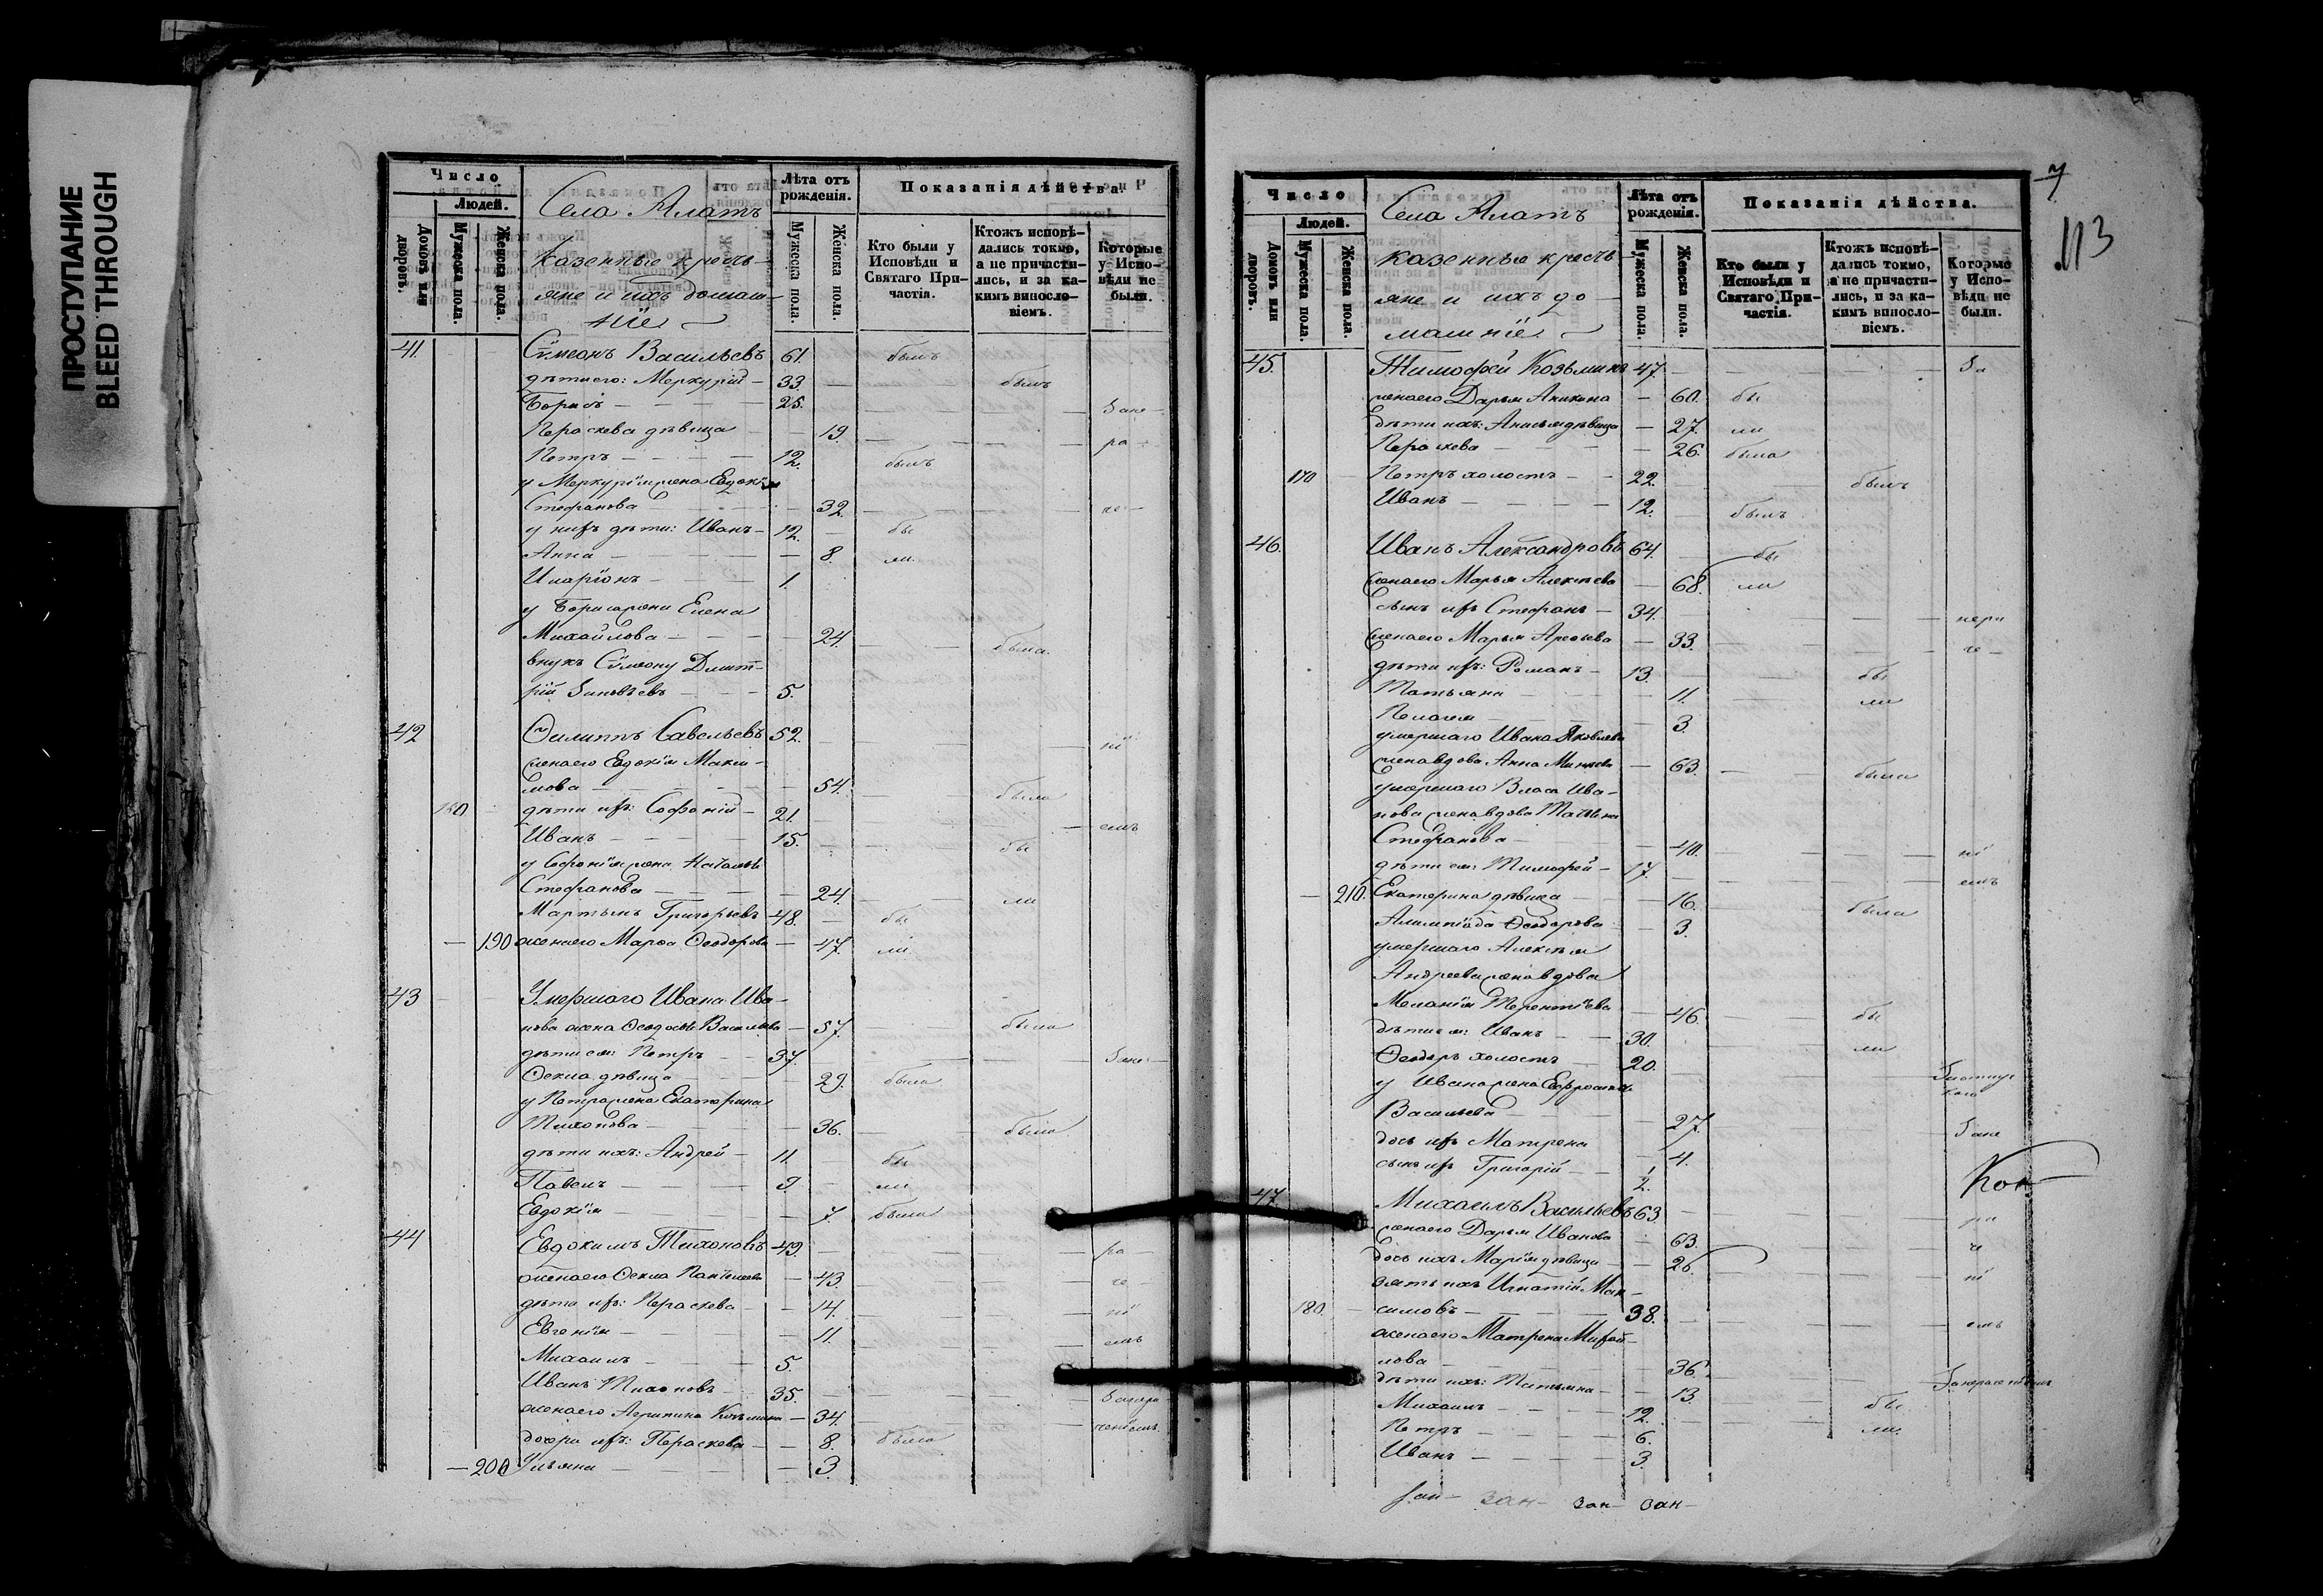 ПРОСТУПАНИЕ
BLEED THROUGH
Число
Людей.
Домовъ или дворовъ.
Мужеска пола.
Женска пола.
Села Алатъ
Казенные кресть-
яне и ихъ домаш-
ніе
Лѣта отъ рожденія.
Мужеска пола.
Женска пола.
Показанія дѣйства.
Кто были у Исповѣди и Святаго При-частія.
Ктожъ исповѣ-дались токмо, а не причасти-лись, и за ка-кимъ винословіемъ.
Которые у Испо-вѣди не были.
41. Сѵмеонъ Васильевъ 61. былъ
дѣти его: Меркурій – 33. былъ
Борисъ 25. Зане-
Параскева дѣвица 19. ра-
Петръ 12. былъ
у Меркурія жена Евдокія
Стефанова 32. че-
у нихъ дѣти: Иванъ 12. бы
Анна 8. ли.
Иларіонъ 1.
у Бориса жена Елена
Михайлова 24. была.
внукъ Сѵмеону Димит-
рій Зиновьевъ 5.
42 Филиппъ Савельевъ 52. ні
жена его Евдокія Макси-
мова 54. была
180 дѣти ихъ: Софоній 21. емъ
Иванъ 15. бы
у Софонія жена Наталья
Стефанова 24. ли
Мартынъ Григорьевъ 48. бы
190 жена его Марѳа Ѳеодорова 47. ли.
43 Умершаго Ивана Ива-
нова жена Ѳеодосья Васильева 57. была
дѣти ея: Петръ 37. Зане-
Ѳекла дѣвица 29. была
у Петра жена Екатерина
Тихонова 36. была
дѣти ихъ: Андрей 11. бы
Павелъ 9. ли
Евдокія 7. была
44 Евдокимъ Тихоновъ 49. ра-
жена его Ѳекла 43. че-
дѣти ихъ: Параскева 14. ні
Евгенія 11. емъ
Михаилъ 5.
Иванъ Тихоновъ 35.
жена его Агрипина Козьмина 34.
дочери ихъ: Параскева 8. была
200 Ульяна 3.
7
113
Число
Людей.
Домовъ или дворовъ.
Мужеска пола.
Женска пола.
Села Алатъ
казенные кресть-
яне и ихъ до-
машніе
Лѣта отъ рожденія.
Мужеска пола.
Женска пола.
Показанія дѣйства.
Кто были у Исповѣди и Святаго При-частія.
Ктожъ исповѣ-дались токмо, а не причасти-лись, и за ка-кимъ винословіемъ.
Которые у Испо-вѣди не были.
45. Тимофей Козьминъ 47. За
жена его Дарья 60. бы
дѣти ихъ: Анисья дѣвица 27. ли
Параскева 26. была
170 Петръ холостъ 22. былъ
Иванъ 12. былъ
46. Иванъ Александровъ 64. бы
жена его Марья Алексѣева 68. ли
сынъ ихъ Стефанъ 34.
жена его Марья 33. че-
дѣти ихъ: Романъ 13. бы
Татьяна 11. ли
Пелагея 3.
умершаго Ивана Яковлева
жена вдова Анна 63. была
умершаго Власа Ива-
нова жена вдова Татьяна
Стефанова 40. ні
дѣти ея: Тимофей 17. емъ
210. Екатерина дѣвица 16. была
Ѳеодорова 3.
умершаго Алексѣя
Андреева жена вдова
Меланія Терентіева 46. бы
дѣти ея: Иванъ 30. ли
Ѳеодоръ холостъ 20.
у Ивана жена
Васильева 27. Зане
дочь ихъ Матрена 4.
сынъ ихъ Григорій ½.
47. Михаилъ Васильевъ 63. ра
жена его Дарья Иванова 63. че
дочь ихъ Марія дѣвица 26. ні
зять ихъ Игнатій Мак-
180. симовъ 38. емъ
жена его Матрена Михай-
лова 36.
дѣти ихъ: Татьяна 13.
Михаилъ 12. бы
Петръ 6. ли.
Иванъ 3.
зан- зан- зан-